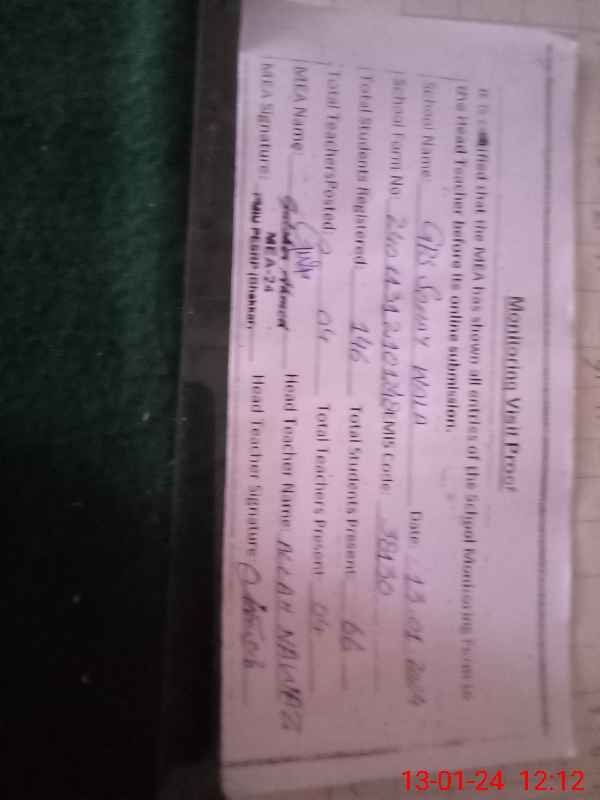 Monitoring Visit Proof
It is certified that the MEA has shown all entries of the School Monitoring Form to
the Head Teacher before its online submission.
School Name: GPS Date: 13.01.2024
School Form No. EMIS Code: 38130
Total Students Registered: 146 Total Students Present 66
Total Teachers Posted: 04 Total Teachers Present 04
MEA Name: Ahmed Head Teacher Name: ALLAH NAWAZ
MEA-24
MEA Signature: PMIU PESRP (Bhakkar) Head Teacher Signature:
13-01-24 12:12